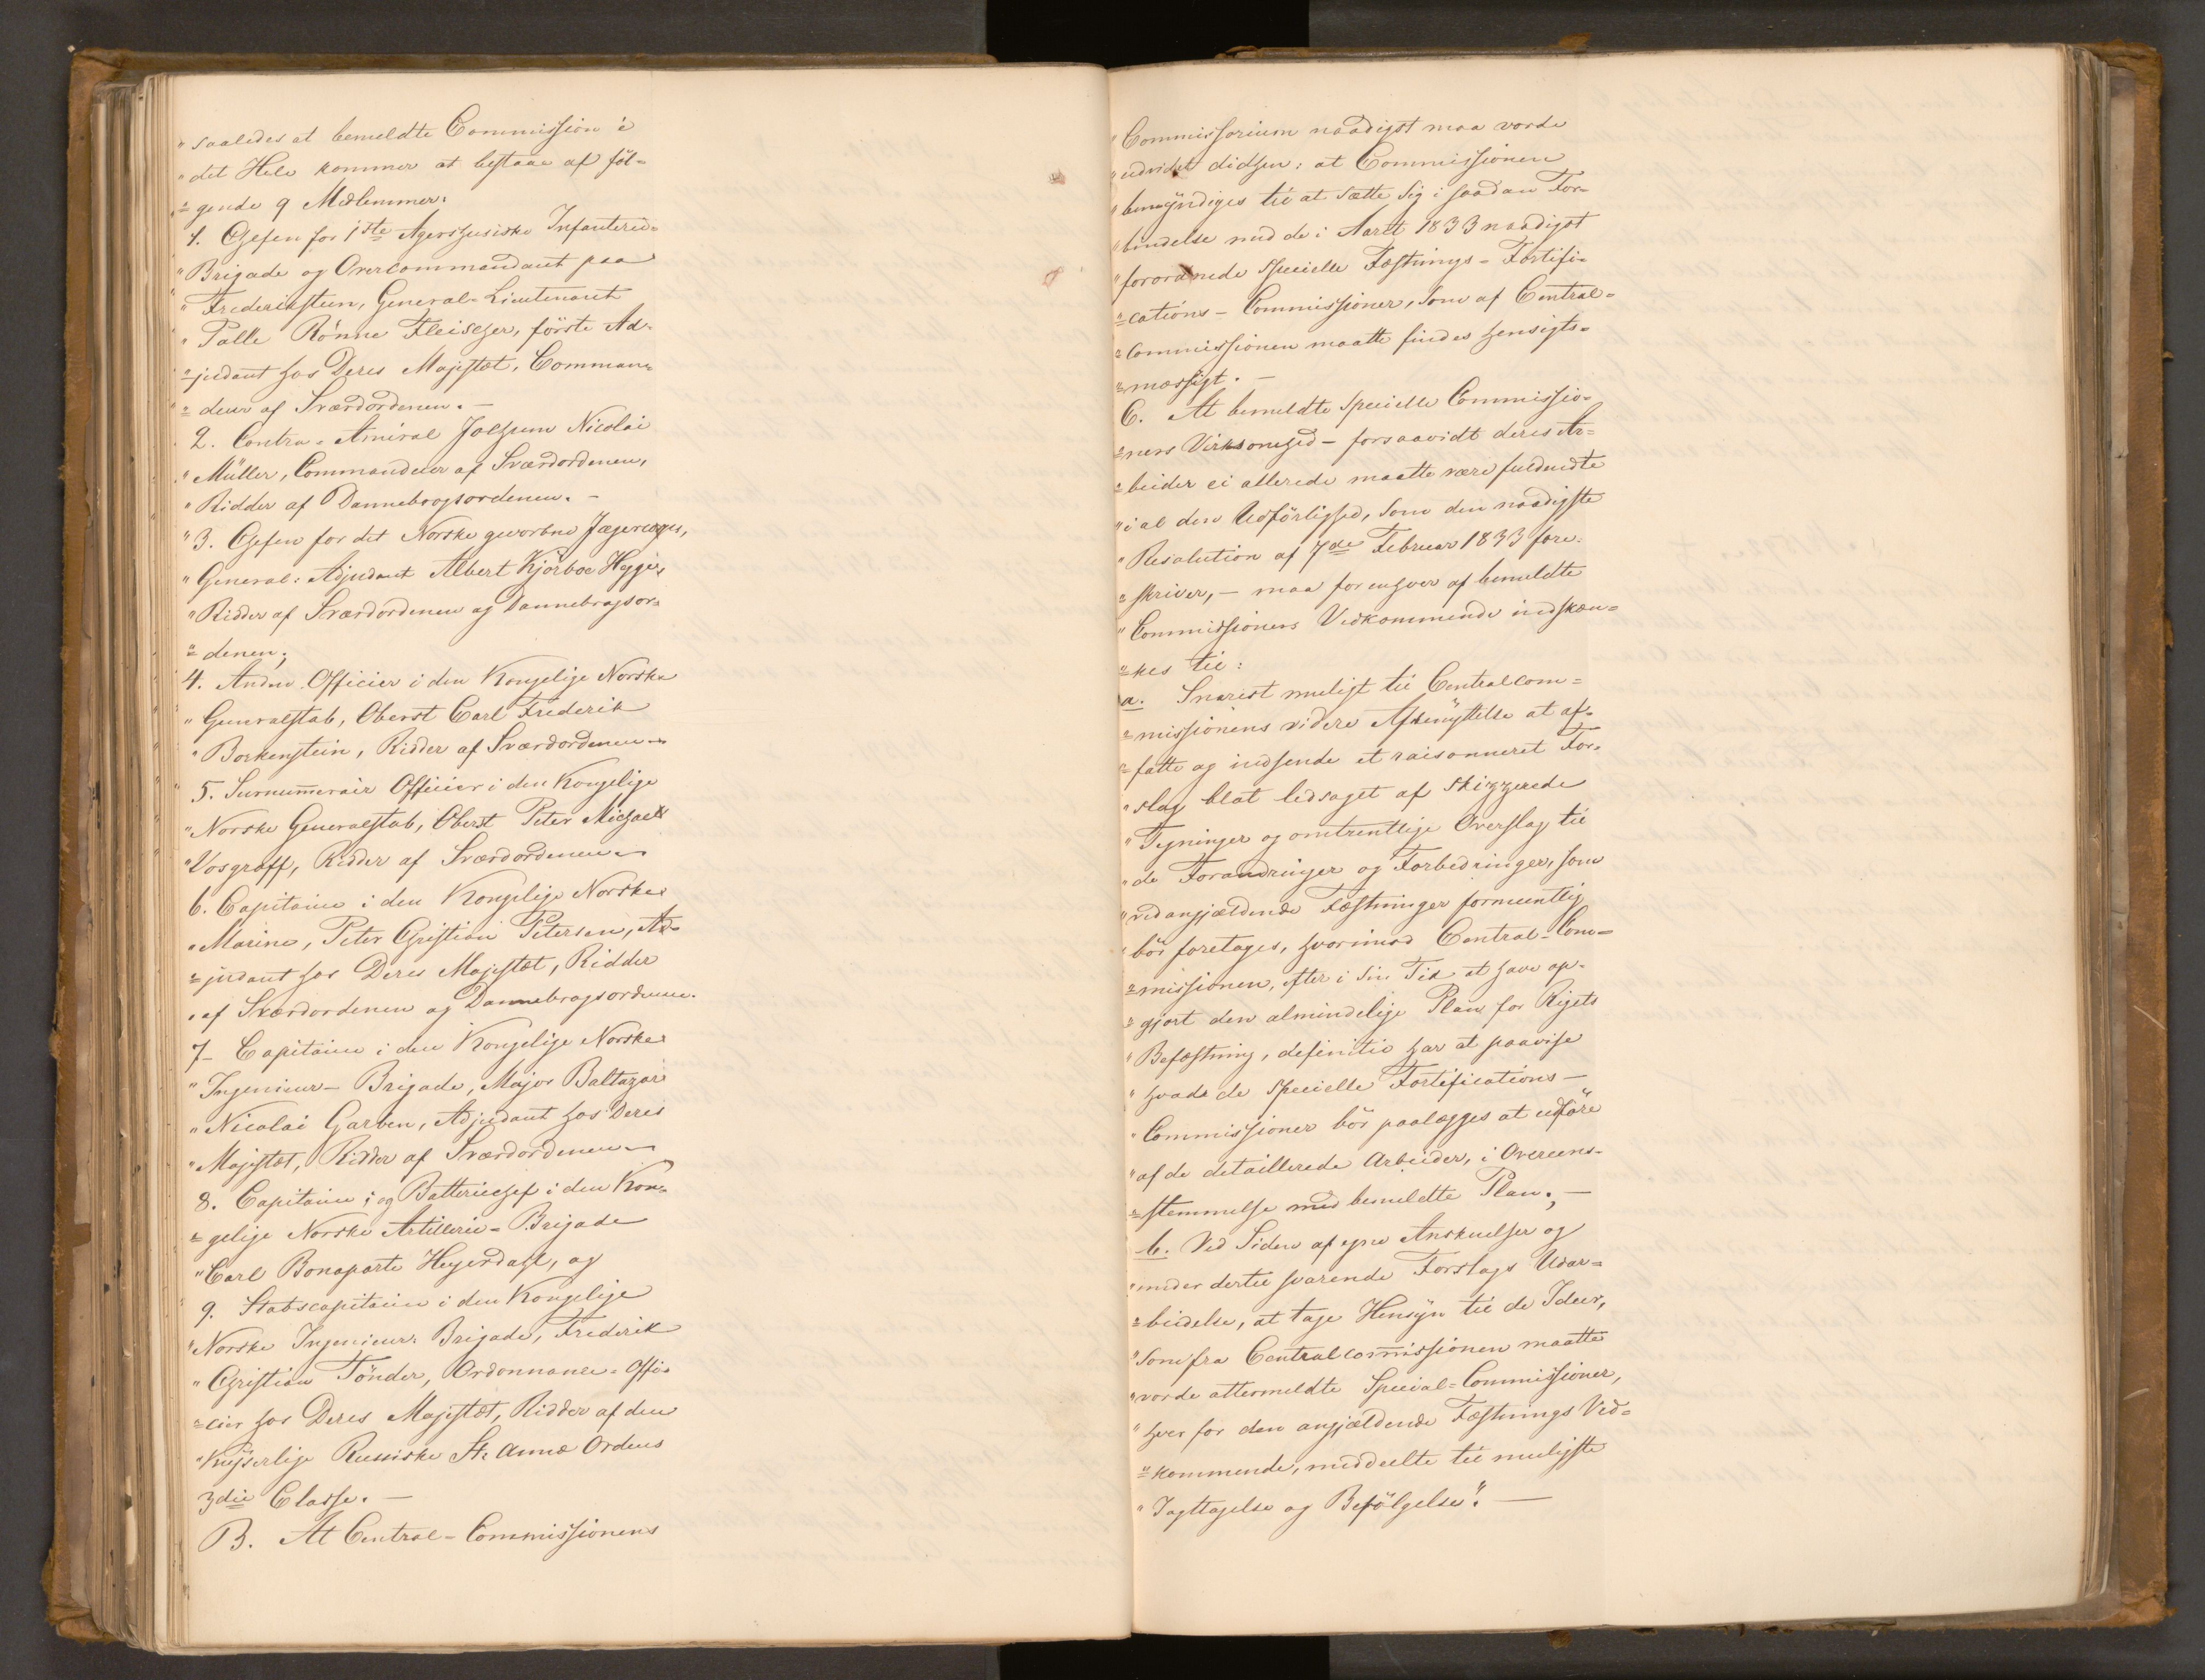 "saaledes at bemeldte Commission i
"det Hele kommer at bestaae af föl=
"=gende 9 Medlemmer:
"1. Chefen for 1ste Agershusiske Infanterie=
"Brigade og Overcommandant paa
"Frederiksteen, General-Lieutenant
"Palle Rönne Fleischer, förste Ad=
"=judant hos Deres Majestæt, Comman=
"=deur af Sværdordenen. —
"2. Contra-Amiral Jochum Nicolai
"Müller, Commandeur af Sværdordenen,
"Ridder af Dannebrogsordenen. —
"3. Chefen for det Norske gevorbne Jægercorps,
"General-Adjudant Albert Kjörboe Hegge,
"Ridder af Sværdordenen og Dannebrogsor=
"=denen;
4. Anden Officier i den Kongelige Norske
"Generalstab, Oberst Carl Frederik
"Borkenstein, Ridder af Sværdordenen —
"5. Surnumerair Officier i den Kongelige
"Norske Generalstab, Oberst Peter Michael
"Vosgraff, Ridder af Sværdordenen —
6. Capitaine i den Kongelige Norske
"Marine, Peter Christian Petersen, Ad=
"=judant hos Deres Majestæt, Ridder
"af Sværdordenen og Dannebrogsordenen.
7. Capitaine i den Kongelige Norske
"Ingenieur- Brigade, Major Baltazar
"Nicolai Garben, Adjudant hos Deres
"Majestæt, Ridder af Sværdordenen —
8. Capitaine; og Batteriechef i den Kon=
"=gelige Norske Artillerie-Brigade
"Carl Bonaparte Heyerdahl, og
9. Stabscapitaine i den Kongelige
"Norske Ingenieur-Brigade, Frederik
"Christian Tönder, Ordonnance-Offi=
"=cier hos Deres Majestæt, Ridder af den
"Keyserlige Russiske St: Annæ Ordens
3die Classe. —
B. At Central-Commissionens
"Commissorium naadigst maa vorde
"udvidet didhen: at Commissionen
"bemyndiges til at sætte sig i saadan For=
"bindelse med de i Aaret 1833 naadigst
"forordnede specielle Fæstnings-Fortifi=
"=cations-Commissioner, som af Central=
"=Commissionen maatte findes hensigts=
"=mæssigt. —
C. At bemeldte specielle Commissio=
"=ners Virksomhed – forsaavidt deres Ar=
"=beider ei allerede maatte være fuldendte
"i al den Udförlighed, som den naadigste
"Resolution af 7de Februar 1833 fore=
"=skriver, — maa for enhver af bemeldte
"Commissioners Vedkommende indskræn=
"=kes til:
a. Snarest muligt til Centralcom=
"=missionens videre Afbenyttelse at af=
"=fatte og indsende et raisonneret For=
"slag blot ledsaget af skizzerede
"Tegninger og omtrentlige Overslag til
"de Forandringer og Forbedringer, som
"ved angjældende Fæstninger formeentlig
"bör foretages, hvorimod Central-Com=
"=missionen, efter i sin Tid at have op=
"=gjort den almindelige Plan for Rigets
"Befæstning, definitiv har at paavise
"hvad de specielle Fortifications —
"Commissioner bör paalægges at udföre
"af de detaillerede Arbeider, i Overeens=
"=stemmelse med bemeldte Plan; —
b. Ved Siden af egne Anskuelser og
"under dertil svarende Forslags Udar=
"=beidelse, at tage Hensyn til de Ideer,
"som fra Centralcommissionen maatte
"vorde attermeldte Special=Commissioner,
"hver for den angjældende Fæstnings Ved=
"=kommende, meddeelte til muligste
"Iagttagelse og Befölgelse". —